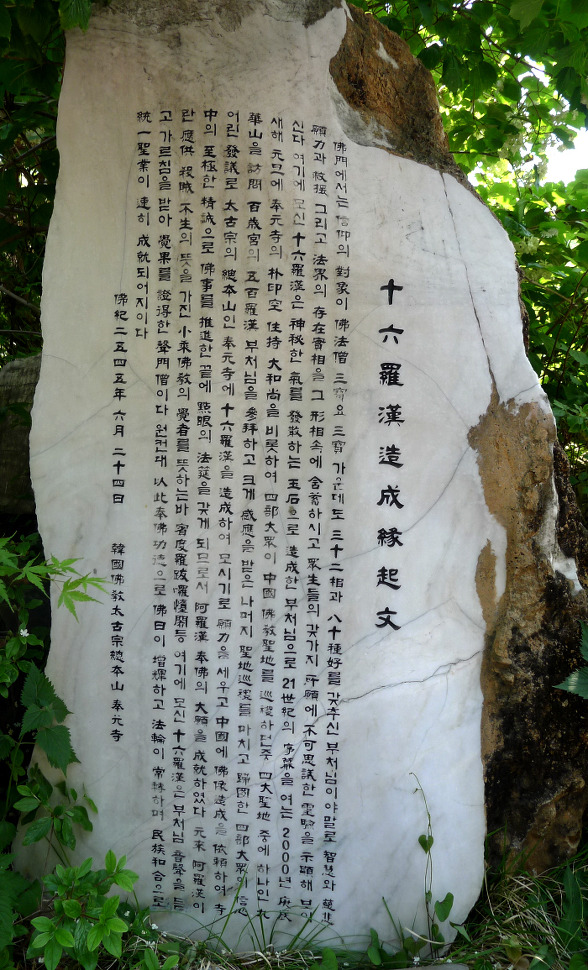 十六羅漢造成緣起文
佛門에서는 信仰의 對象이 佛法僧 三寶요 三寶 가운데도 三十二相과 八十種好를 갖추신 부처님이야말로 智慧와 慈悲
願力과 救援 그리고 法界의 存在實相을 그 形相속에 含蓄하시고 眾生들의 갖가지 所願에 不可思議한 靈驗을 示顯해 보이
신다 여기에 모신 十六羅漢은 神秘한 氣를 發散하는 玉石으로 造成한 부처님으로 21世紀의 序幕을 여는 2000년 庚辰
새해 元旦에 奉元寺의 朴印空 住持 大和尚을 비롯하여 四部大眾이 中國 佛教聖地를 巡禮하던中 四大聖地 중에 하나인 九
華山을 訪問 百歲宮의 五百羅漢 부처님을 參拜하고 크게 感應을 받은 나머지 聖地巡禮를 마치고 歸國한 四部大眾의 信心
어린 發議로 太古宗의 總本山인 奉元寺에 十六羅漢을 造成하여 모시기로 願力을 세우고 中國에 佛像造成을 依賴하여 寺
中의 至極한 精誠으로 佛事를 推進한 끝에 點眼의 法筵을 갖게 되므로서 阿羅漢 奉佛의 大願을 成就하였다 元來 阿羅漢이
란 應供 殺賊 不生의 뜻을 가진 小乘佛教의 覺者를 뜻하는바 賓度羅跋囉惰闍등 여기에 모신 十六羅漢은 부처님 音聲을 듣
고 가르침을 받아 覺果를 證得한 聲門僧이다 원컨대 以此奉佛功德으로 佛日이 增輝하고 法輪이 常轉하며 民族和合으로
統一聖業이 速히 成就되어지이다
佛紀 二五四五年 六月 二十四日 韓國佛教太古宗總本山 奉元寺